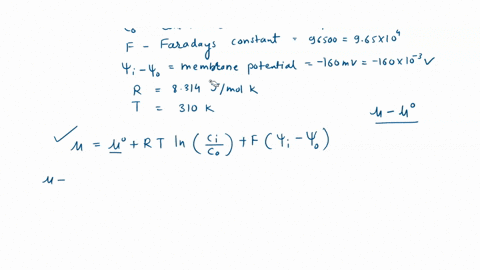 F - Faradays constant = 96500 = 9.65×10⁴
Ψi-Ψo = membrane potential = -160mV = -160×10⁻³ V
R = 8.314 J/mol K
T = 310 K
μ - μ⁰
✓ μ = μ⁰ + RT ln (Ci/Co) + F (Ψi - Ψo)
μ -